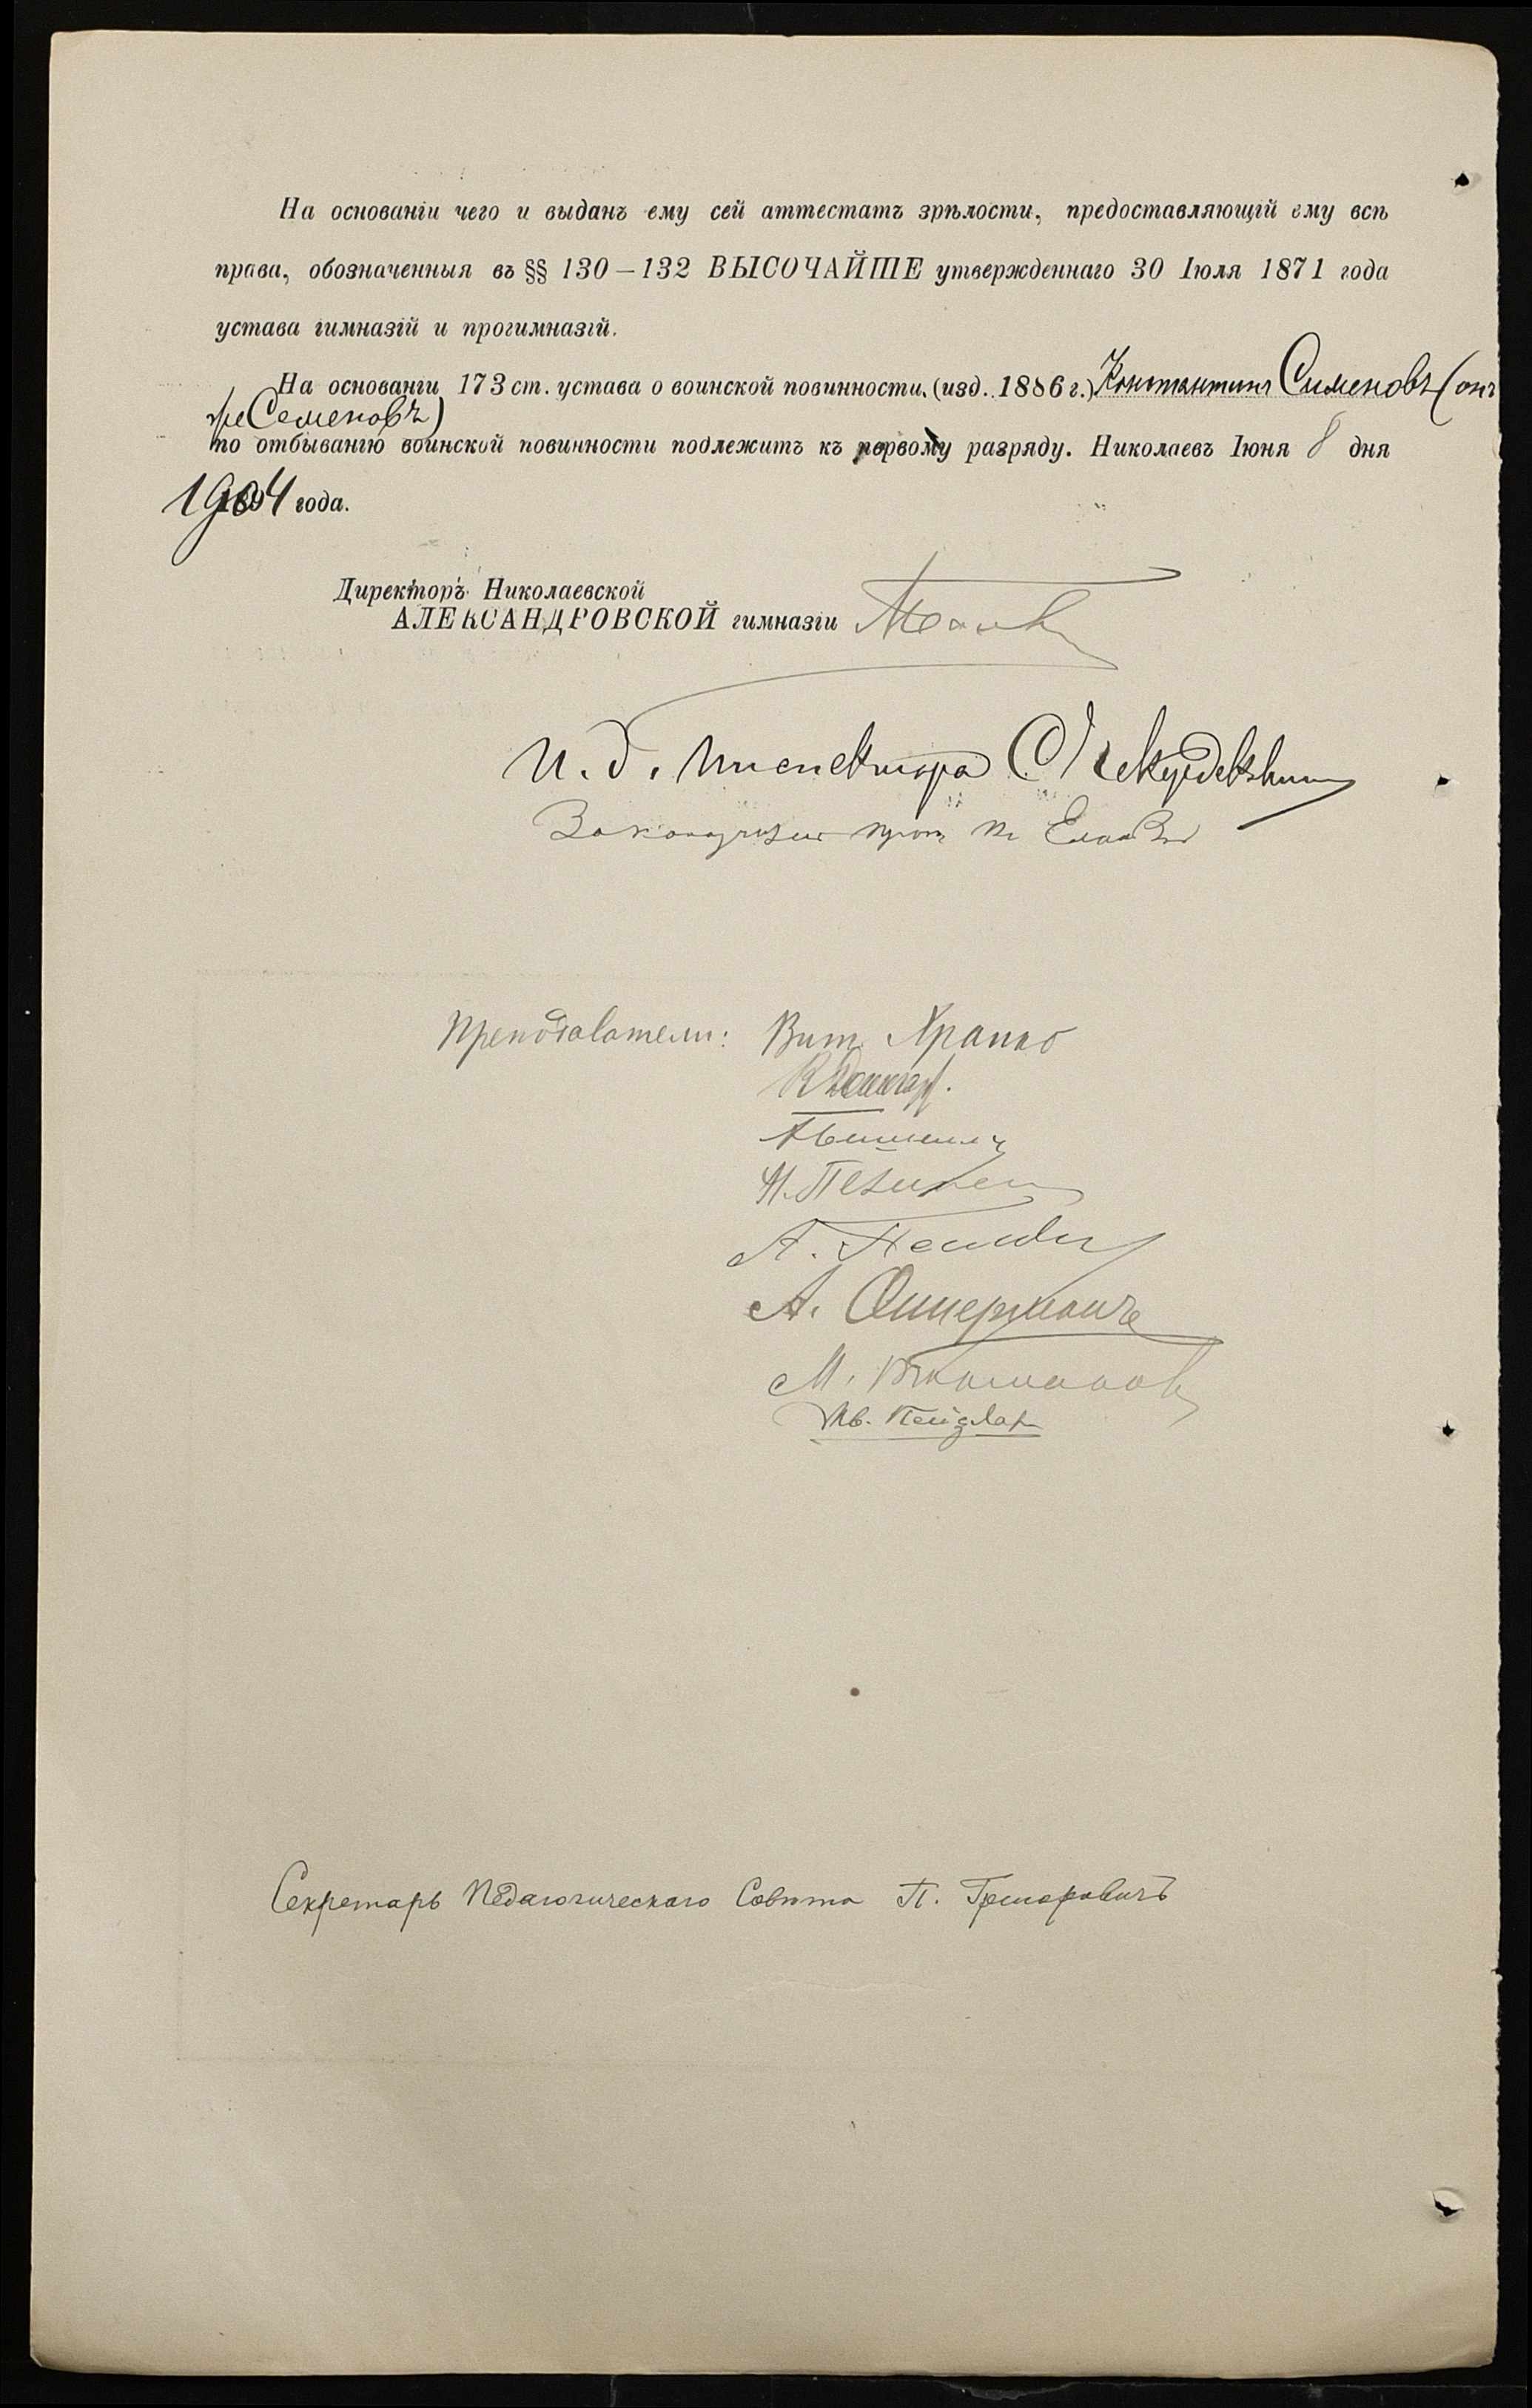 На основаніи чего и выданъ ему сей аттестатъ зрѣлости, предоставляющій ему всѣ
права, обозначенныя въ §§ 130–132 ВЫСОЧАЙШЕ утвержденнаго 30 Іюля 1871 года
устава гимназій и прогимназій.
На основаніи 173 ст. устава о воинской повинности (изд. 1886 г.) Константинъ Сименовъ (онъ
же Семеновъ)
по отбыванію воинской повинности подлежитъ къ первому разряду. Николаевъ Іюня 8 дня
1904 года.
Директоръ Николаевской
АЛЕКСАНДРОВСКОЙ гимназіи
И. д. Инспектора
Законоучитель
Преподаватели: Вит. Храпко
А.
А.
М.
Ив.
Секретарь Педагогическаго Совѣта П. Григоровичъ